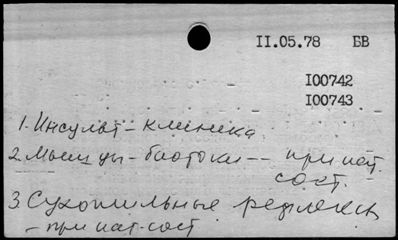 II.05.78 БВ
I00742
I00743
1. Инсульт - клиника
2. Мышцы - биотоки -- при пат.
сост.
3 Сухожильные рефлексы
- при пат. сост